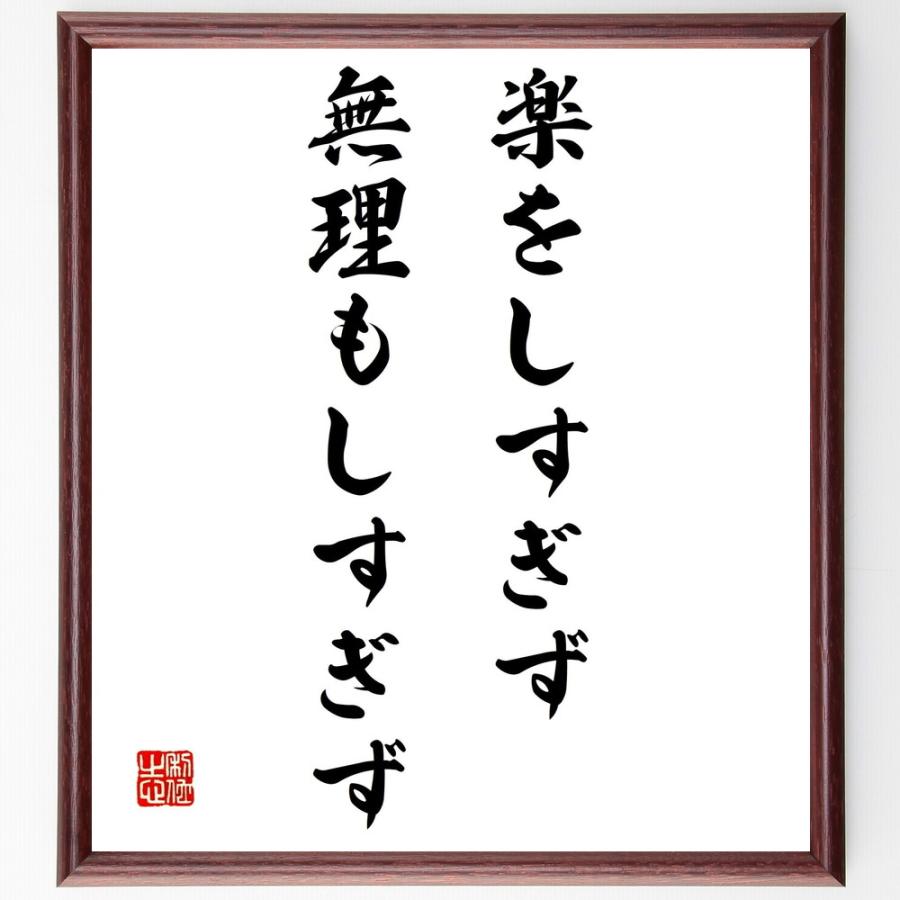 楽をしすぎず
無理もしすぎず